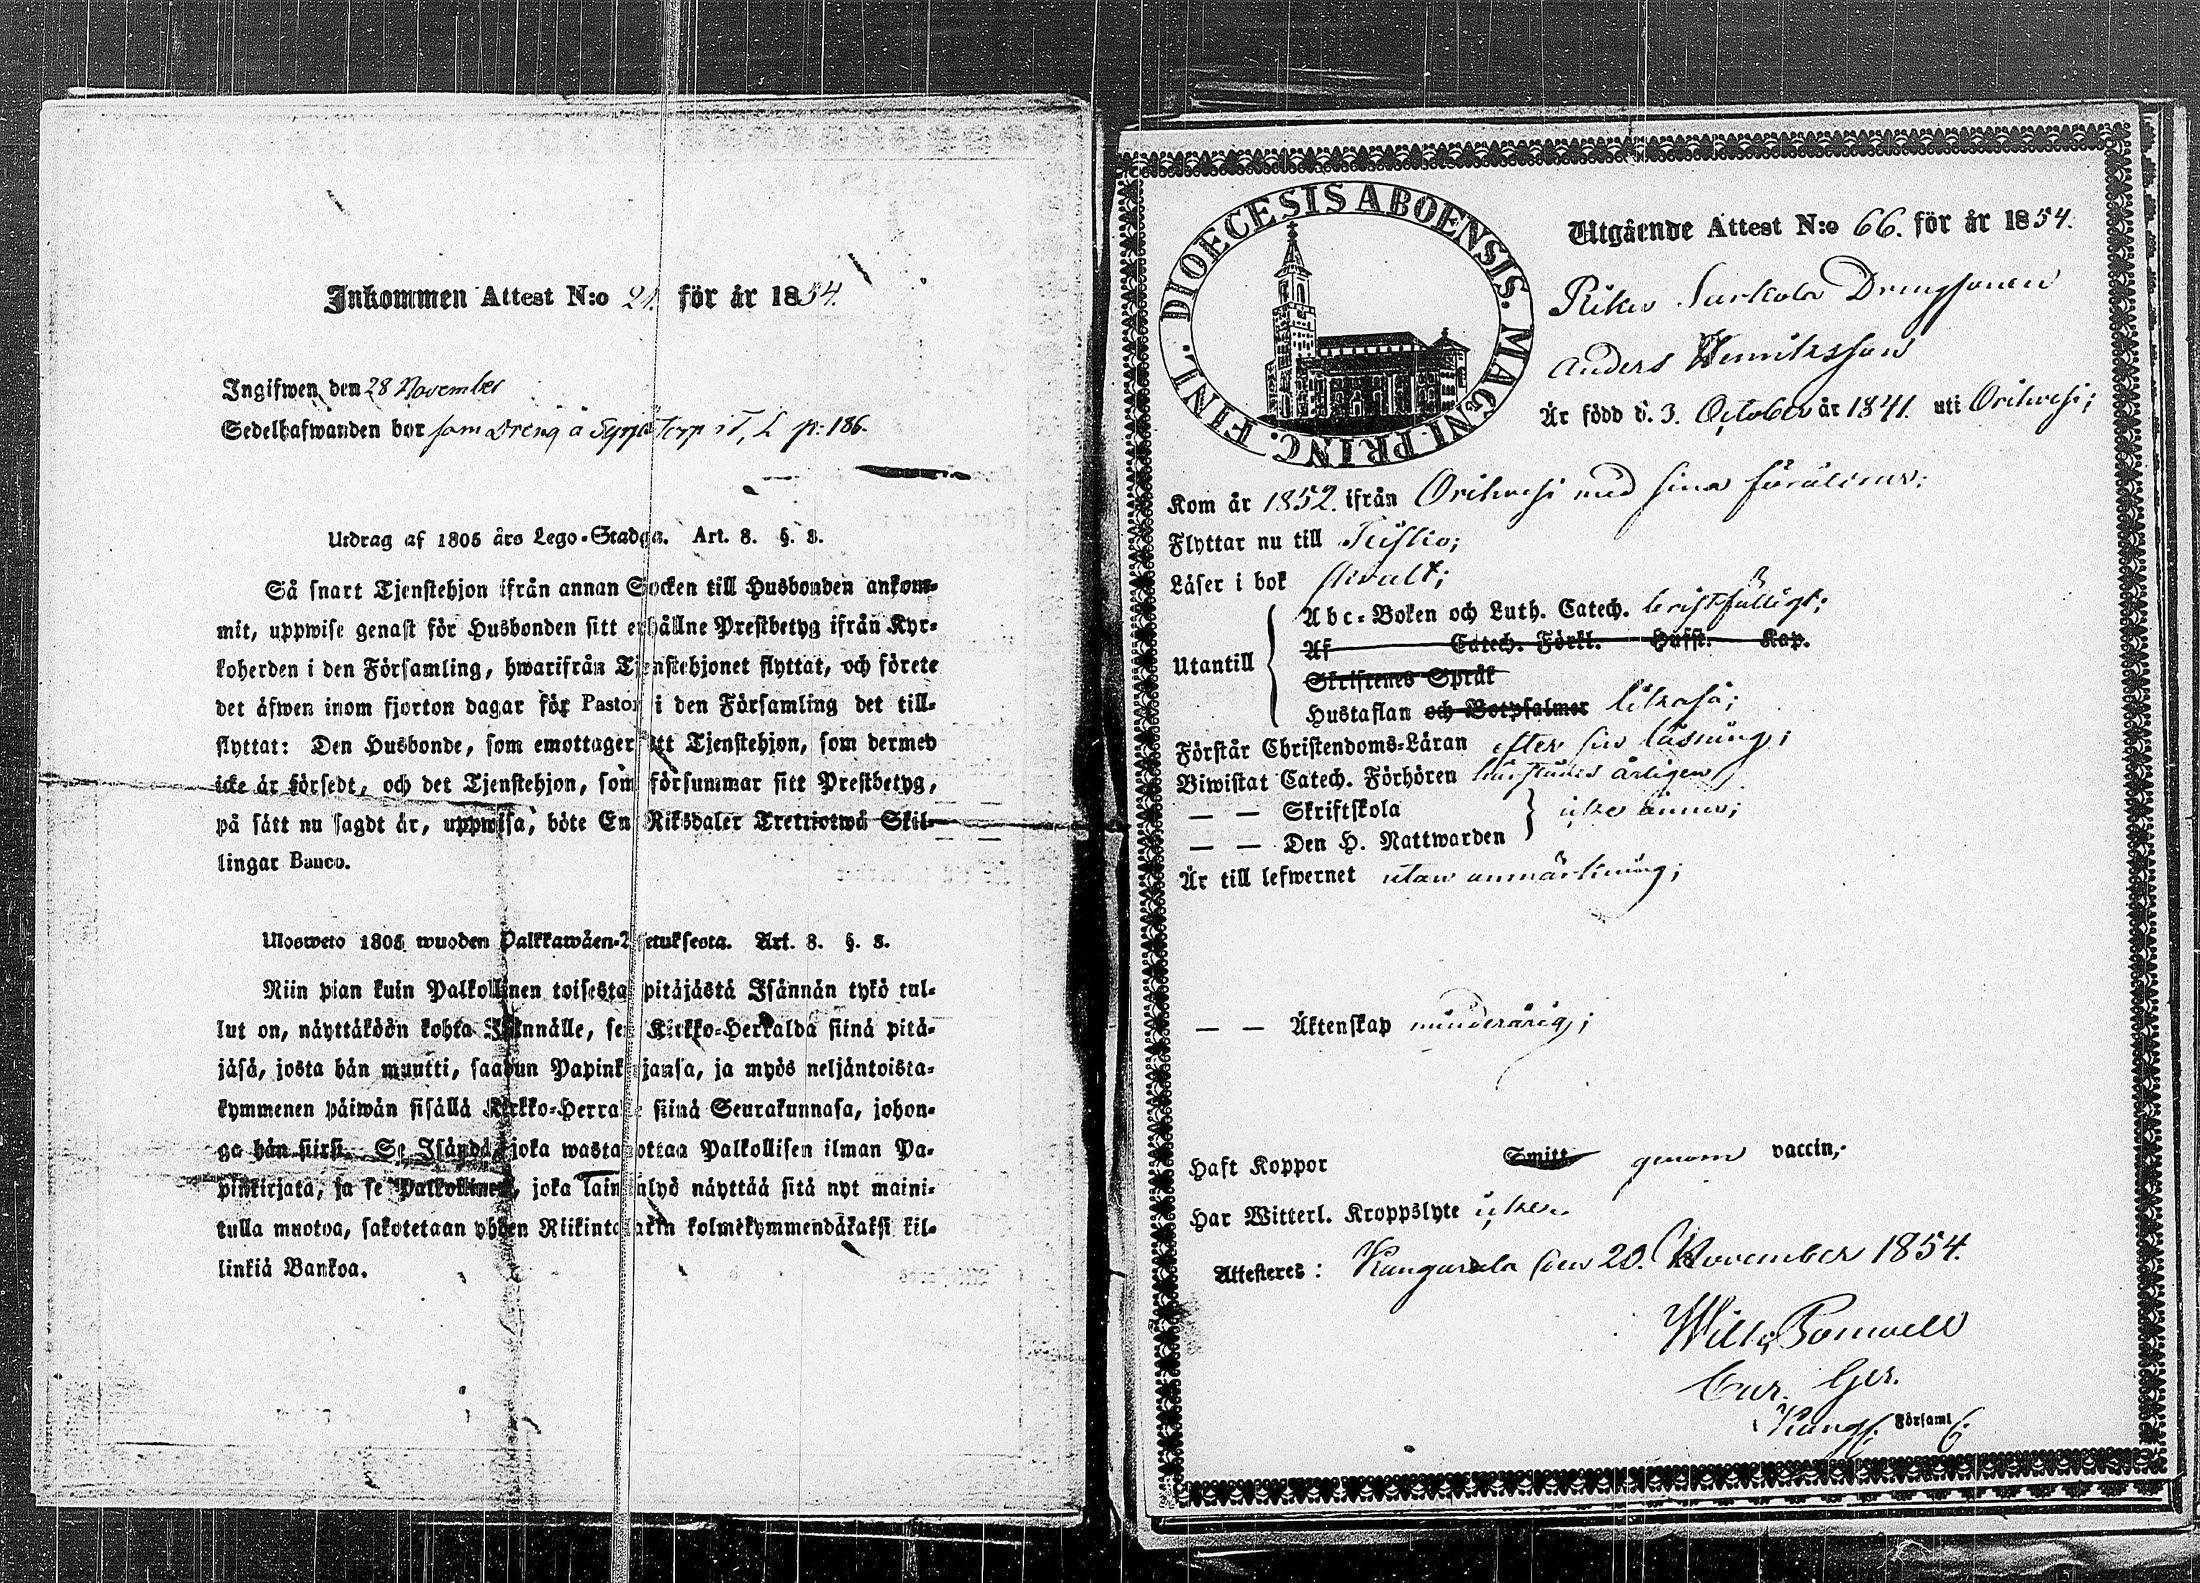 Inkommen Attest N:o 21. för år 1854.
Ingifwen den 28 November
Sedelhafwanden bor som Dreng å Torp p: 186.
Utdrag af 1805 års Lego-Stadga. Art. 8. §. 3.
Så snart Tjenstehjon ifrån annan Socken till Husbonden ankom-
mit, uppwise genast för Husbonden sitt erhållne Prestbetyg ifrån Kyr-
koherden i den Församling, hwarifrån Tjenstehjonet flyttat, och förete
det äfwen inom fjorton dagar för Pastor i den Församling det till-
flyttat: Den Husbonde, som emottager ett Tjenstehjon, som dermed
icke är försedt, och det Tjenstehjon, som försummar sitt Prestbetyg,
på sätt nu sagdt är, uppwisa, böte En Riksdaler Trettiotwå Skil-
lingar Banco.
Ulosweto 1805 wuoden Palkkawäen-Asetuksesta. Art. 8. §. 3.
Niin pian kuin Palkollinen toisesta pitäjästä Isännän tykö tul-
lut on, näyttäköön kohta Isännälle, sen Kirkko-Herralda siinä pitä-
jäsä, josta hän muutti, saadun Papinkirjansa, ja myös neljäntoista-
kymmenen päiwän sisällä Kirkko-Herralle siinä Seurakunnasa, johon-
ga hän siirsi. Se Isändä, joka wastaanottaa Palkollisen ilman Pa-
pinkirjata, ja se Palkollinen, joka laiminlyö näyttää sitä nyt maini-
tulla muotoa, sakotetaan yhden Riikintalarin kolmekymmendäkaksi kil-
linkiä Bankoa.
DIOECESIS ABOENSIS. MAGNI PRINC. FINL.
Utgående Attest N:o 66. för år 1854.
Riku Surkola Drengsonen
Anders Henriksson
Är född d. 3. October år 1841. uti Orihvesi;
Kom år 1852. ifrån Orihvesi med sina föräldrar;
Flyttar nu till Teisko;
Läser i bok svalt;
Utantill
Abc-Boken och Luth. Catech. bristfälligt;
Af Catech. Förkl. Hufst. Kap.
Skriftenes Språk
Hustaflan och Botpsalmer likaså;
Förstår Christendoms-Läran efter sin läsning;
Biwistat Catech. Förhören härstädes årligen;
— — Skriftskola
icke ännu;
— — Den H. Nattwarden
Är till lefwernet utan anmärkning;
— — Äktenskap minderårig;
Haft Koppor Smitt genom vaccin;
Har Witterl. Kroppslyte icke.
Attesteres: Kangasala den 20. November 1854.
Wilh.
Cur. Ger.
Kang. Församl